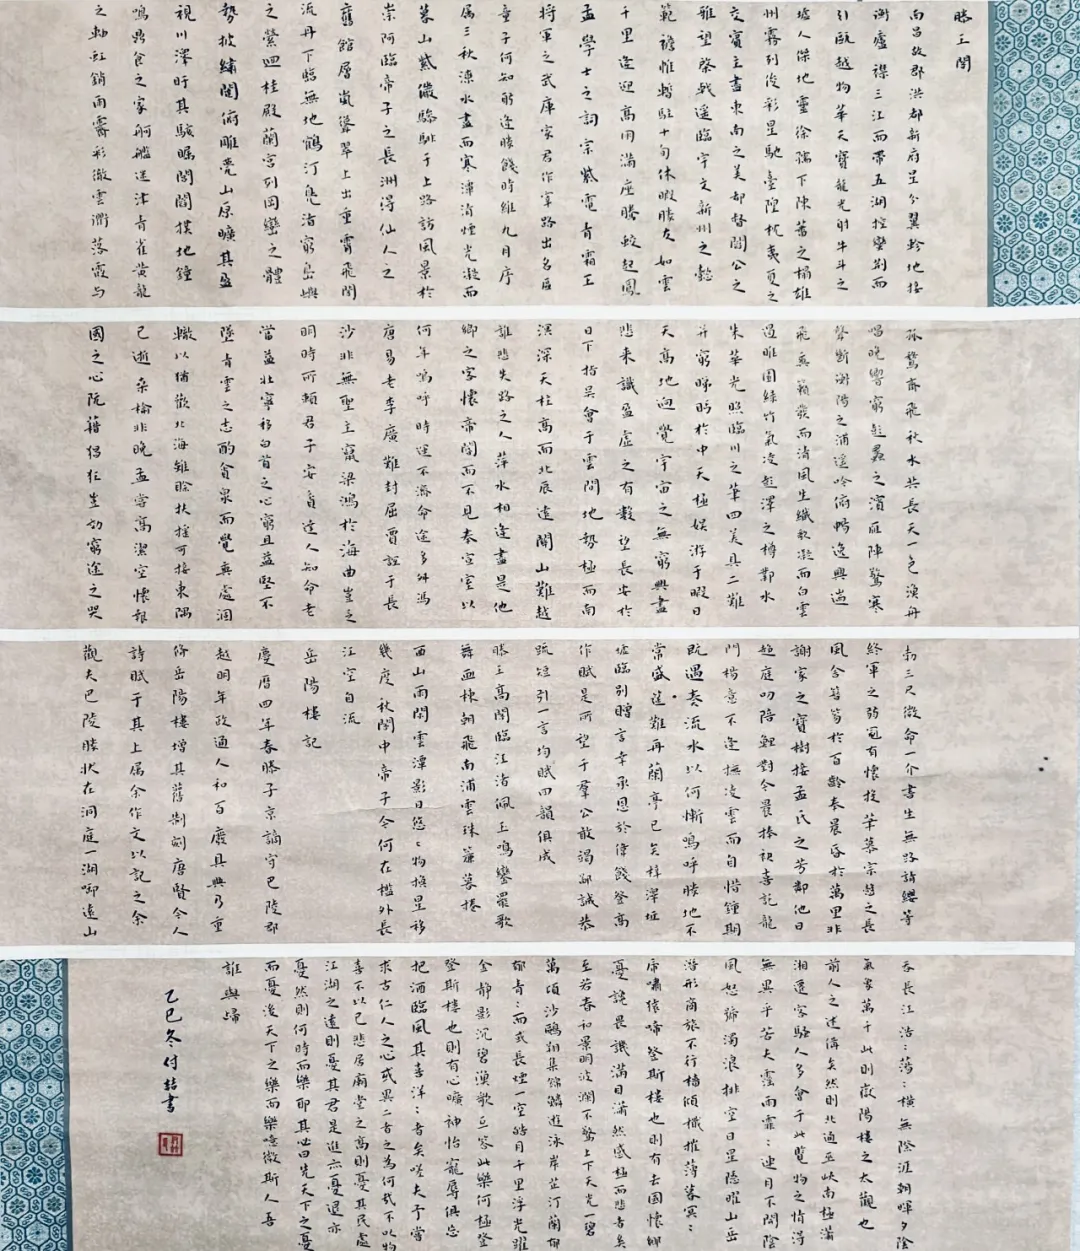 滕王閣
南昌故郡洪都新府星分翼軫地接
衡廬襟三江而帶五湖控蠻荊而
引甌越物華天寶龍光射牛斗之
墟人傑地靈徐孺下陳蕃之榻雄
州霧列俊彩星馳臺隍枕夷夏之
交賓主盡東南之美都督閻公之
雅望棨戟遙臨宇文新州之懿
範襜帷暫駐十旬休暇勝友如雲
千里逢迎高朋滿座騰蛟起鳳
孟學士之詞宗紫電青霜王
將軍之武庫家君作宰路出名區
童子何知躬逢勝餞時維九月序
属三秋潦水盡而寒潭清煙光凝而
暮山紫儼驂騑于上路訪風景於
崇阿臨帝子之長洲得仙人之
舊館層巒聳翠上出重霄飛閣
流丹下臨無地鶴汀鳧渚窮島嶼
之縈迴桂殿蘭宮列岡巒之體
勢披繡闥俯雕甍山原曠其盈
視川澤盱其駭矚閭閻撲地鐘
鳴鼎食之家舸艦迷津青雀黃龍
之軸虹銷雨霽彩徹雲衢落霞与
孤鶩齊飛秋水共長天一色漁舟
唱晚響窮彭蠡之濱雁陣驚寒
聲斷衡陽之浦遙吟俯暢逸興遄
飛爽籟發而清風生纖歌凝而白雲
遏睢園綠竹氣凌彭澤之樽鄴水
朱華光照臨川之筆四美具二難
并窮睇眄於中天極娛游于暇日
天高地迥覺宇宙之無窮興盡
悲来識盈虛之有數望長安於
日下指吳會于雲間地勢極而南
溟深天柱高而北辰遠關山難越
誰悲失路之人萍水相逢盡是他
鄉之客懷帝閽而不見奉宣室以
何年嗚呼時運不濟命途多舛馮
唐易老李廣難封屈賈誼于長
沙非無聖主竄梁鴻於海曲豈乏
明時所賴君子安貧達人知命老
當益壯寧移白首之心窮且益堅不
墜青雲之志酌貪泉而覺爽處涸
轍以猶歡北海雖賒扶搖可接東隅
已逝桑榆非晚孟嘗高潔空懷報
國之心阮藉猖狂豈効窮途之哭
勃三尺微命一介書生無路請纓等
終軍之弱冠有懷投筆慕宗慤之長
風舍簪笏於百齡奉晨昏於萬里非
謝家之寶樹接孟氏之芳鄰他日
趨庭叨陪鯉對今晨捧袂喜託龍
門楊意不逢撫凌雲而自惜鍾期
既遇奏流水以何慚嗚呼勝地不
常盛筵難再蘭亭已矣梓澤坵
墟臨別贈言幸承恩於偉餞登高
作賦是所望于羣公敢竭鄙誠恭
疏短引一言均賦四韻俱成
滕王高閣臨江渚佩玉鳴鸞罷歌
舞畫棟朝飛南浦雲珠簾暮捲
西山雨閑雲潭影日悠〻物換星移
幾度秋閣中帝子今何在檻外長
江空自流
岳陽樓記
慶曆四年春滕子京謫守巴陵郡
越明年政通人和百廢具興乃重
脩岳陽樓增其舊制刻唐賢今人
詩賦于其上属余作文以記之余
觀夫巴陵勝狀在洞庭一湖啣遠山
吞長江浩〻蕩〻橫無際涯朝暉夕陰
氣象萬千此則嶽陽樓之大觀也
前人之述俻矣然則北通巫峽南極瀟
湘遷客騷人多會于此覽物之情得
無異乎若夫霪雨霏〻連月不開陰
風怒號濁浪排空日星隱曜山岳
潛形商旅不行檣傾檝摧薄暮冥〻
虎嘯猿啼登斯樓也則有去國懷鄉
憂讒畏譏滿目蕭然感極而悲者矣
至若春和景明波瀾不驚上下天光一碧
萬頃沙鷗翔集錦鱗遊泳岸芷汀蘭郁
郁青〻而或長煙一空皓月千里浮光躍
金靜影沉碧漁歌互答此樂何極登
登斯樓也則有心曠神怡寵辱俱忘
把酒臨風其喜洋〻者矣嗟夫予嘗
求古仁人之心或異二者之為何哉不以物
喜不以己悲居廟堂之高則憂其民處
江湖之遠則憂其君是進亦憂退亦
憂然則何時而樂耶其必曰先天下之憂
而憂後天下之樂而樂噫微斯人吾
誰與歸
乙巳冬付喆書